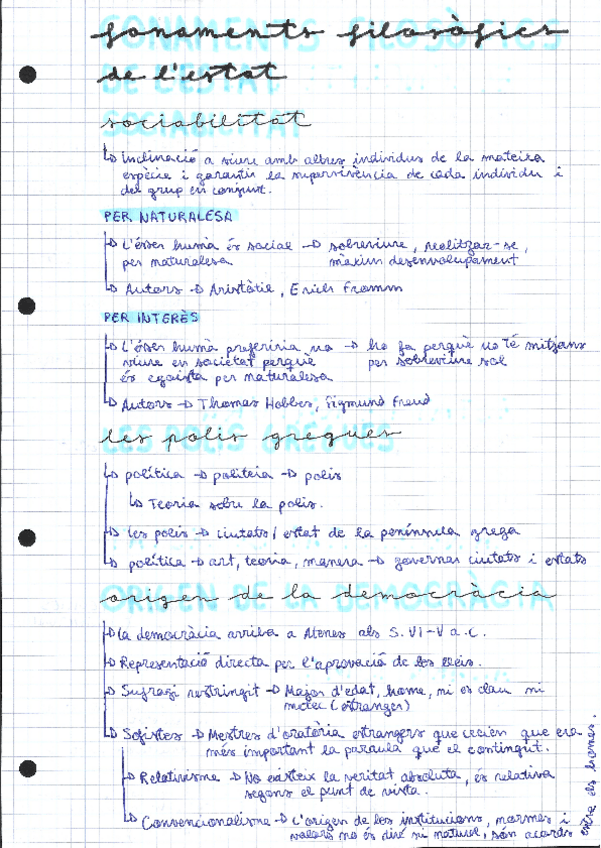 fonaments filosòfics
de l'estat
sociabilitat
↳ Inclinació a viure amb altres individus de la mateixa
espècie i garantir la supervivència de cada individu i
del grup en conjunt.
PER NATURALESA
→ L'ésser humà és social → sobreviure, realitzar-se,
per naturalesa màxim desenvolupament
→ Autors → Aristòtil, Erich Fromm
PER INTERÈS
→ L'ésser humà preferiria no → ho fa perquè no té mitjans
viure en societat perquè per sobreviure sol
és egoista per naturalesa
→ Autors → Thomas Hobbes, Sigmund Freud
les polis gregues
→ política → politeia → polis
↳ Teoria sobre la polis.
→ les polis → ciutats / estat de la península grega
→ política → art, teoria, manera → governar ciutats i estats
origen de la democràcia
→ la democràcia arriba a Atenes als S. VI-V a.C.
→ Representació directa per l'aprovació de les lleis.
→ Sufragi restringit → Major d'edat, home, ni esclau ni
metec (estranger)
→ Sofistes → Mestres d'oratòria estrangers que creien que era
més important la paraula que el contingut.
→ Relativisme → No existeix la veritat absoluta, és relativa
segons el punt de vista.
→ Convencionalisme → L'origen de les institucions, normes i
valors no és diví ni natural, són acords
entre els homes.